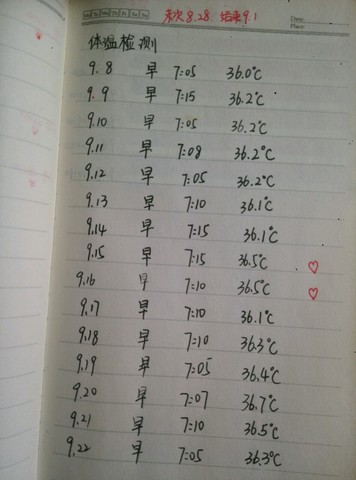 末次8.28. 结束9.1
Date:
Place:
体温检测
9.8 早 7:05 36.0℃
9.9 早 7:15 36.2℃
9.10 早 7:05 36.2℃
9.11 早 7:08 36.2℃
9.12 早 7:05 36.2℃
9.13 早 7:10 36.1℃
9.14 早 7:15 36.1℃
9.15 早 7:15 36.5℃
9.16 早 7:10 36.5℃
9.17 早 7:10 36.1℃
9.18 早 7:10 36.3℃
9.19 早 7:05 36.4℃
9.20 早 7:07 36.7℃
9.21 早 7:10 36.5℃
9.22 早 7:05 36.3℃